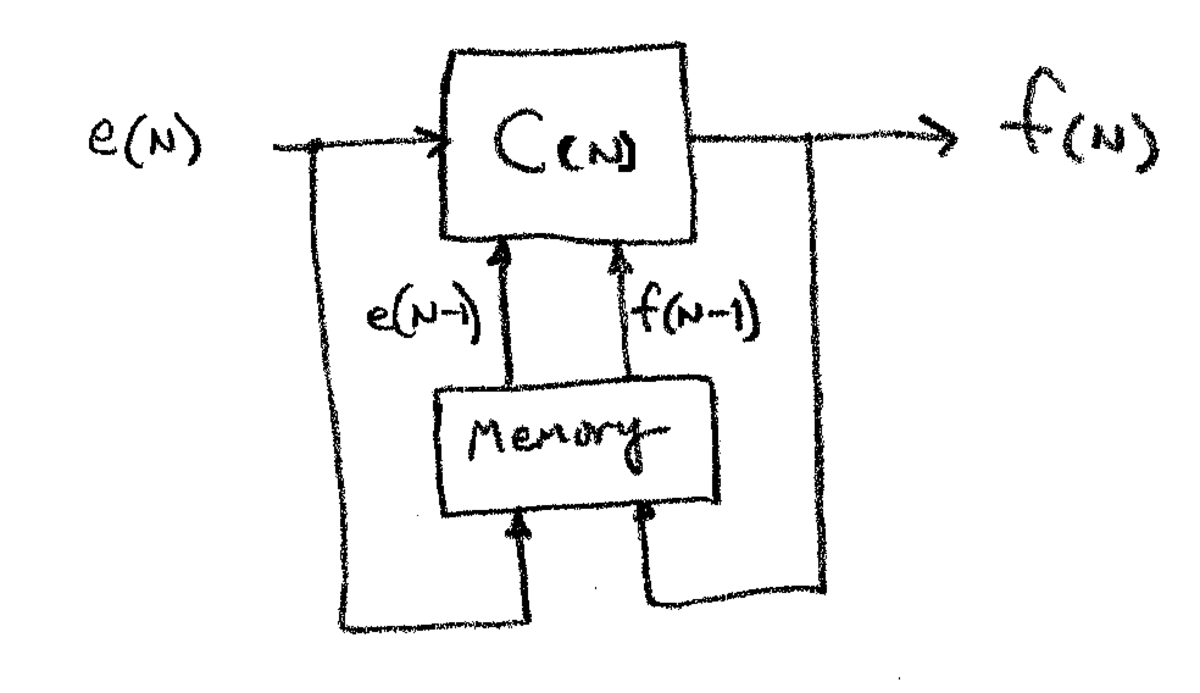 e(N)
C(N)
f(N)
e(N-1)
f(N-1)
Memory